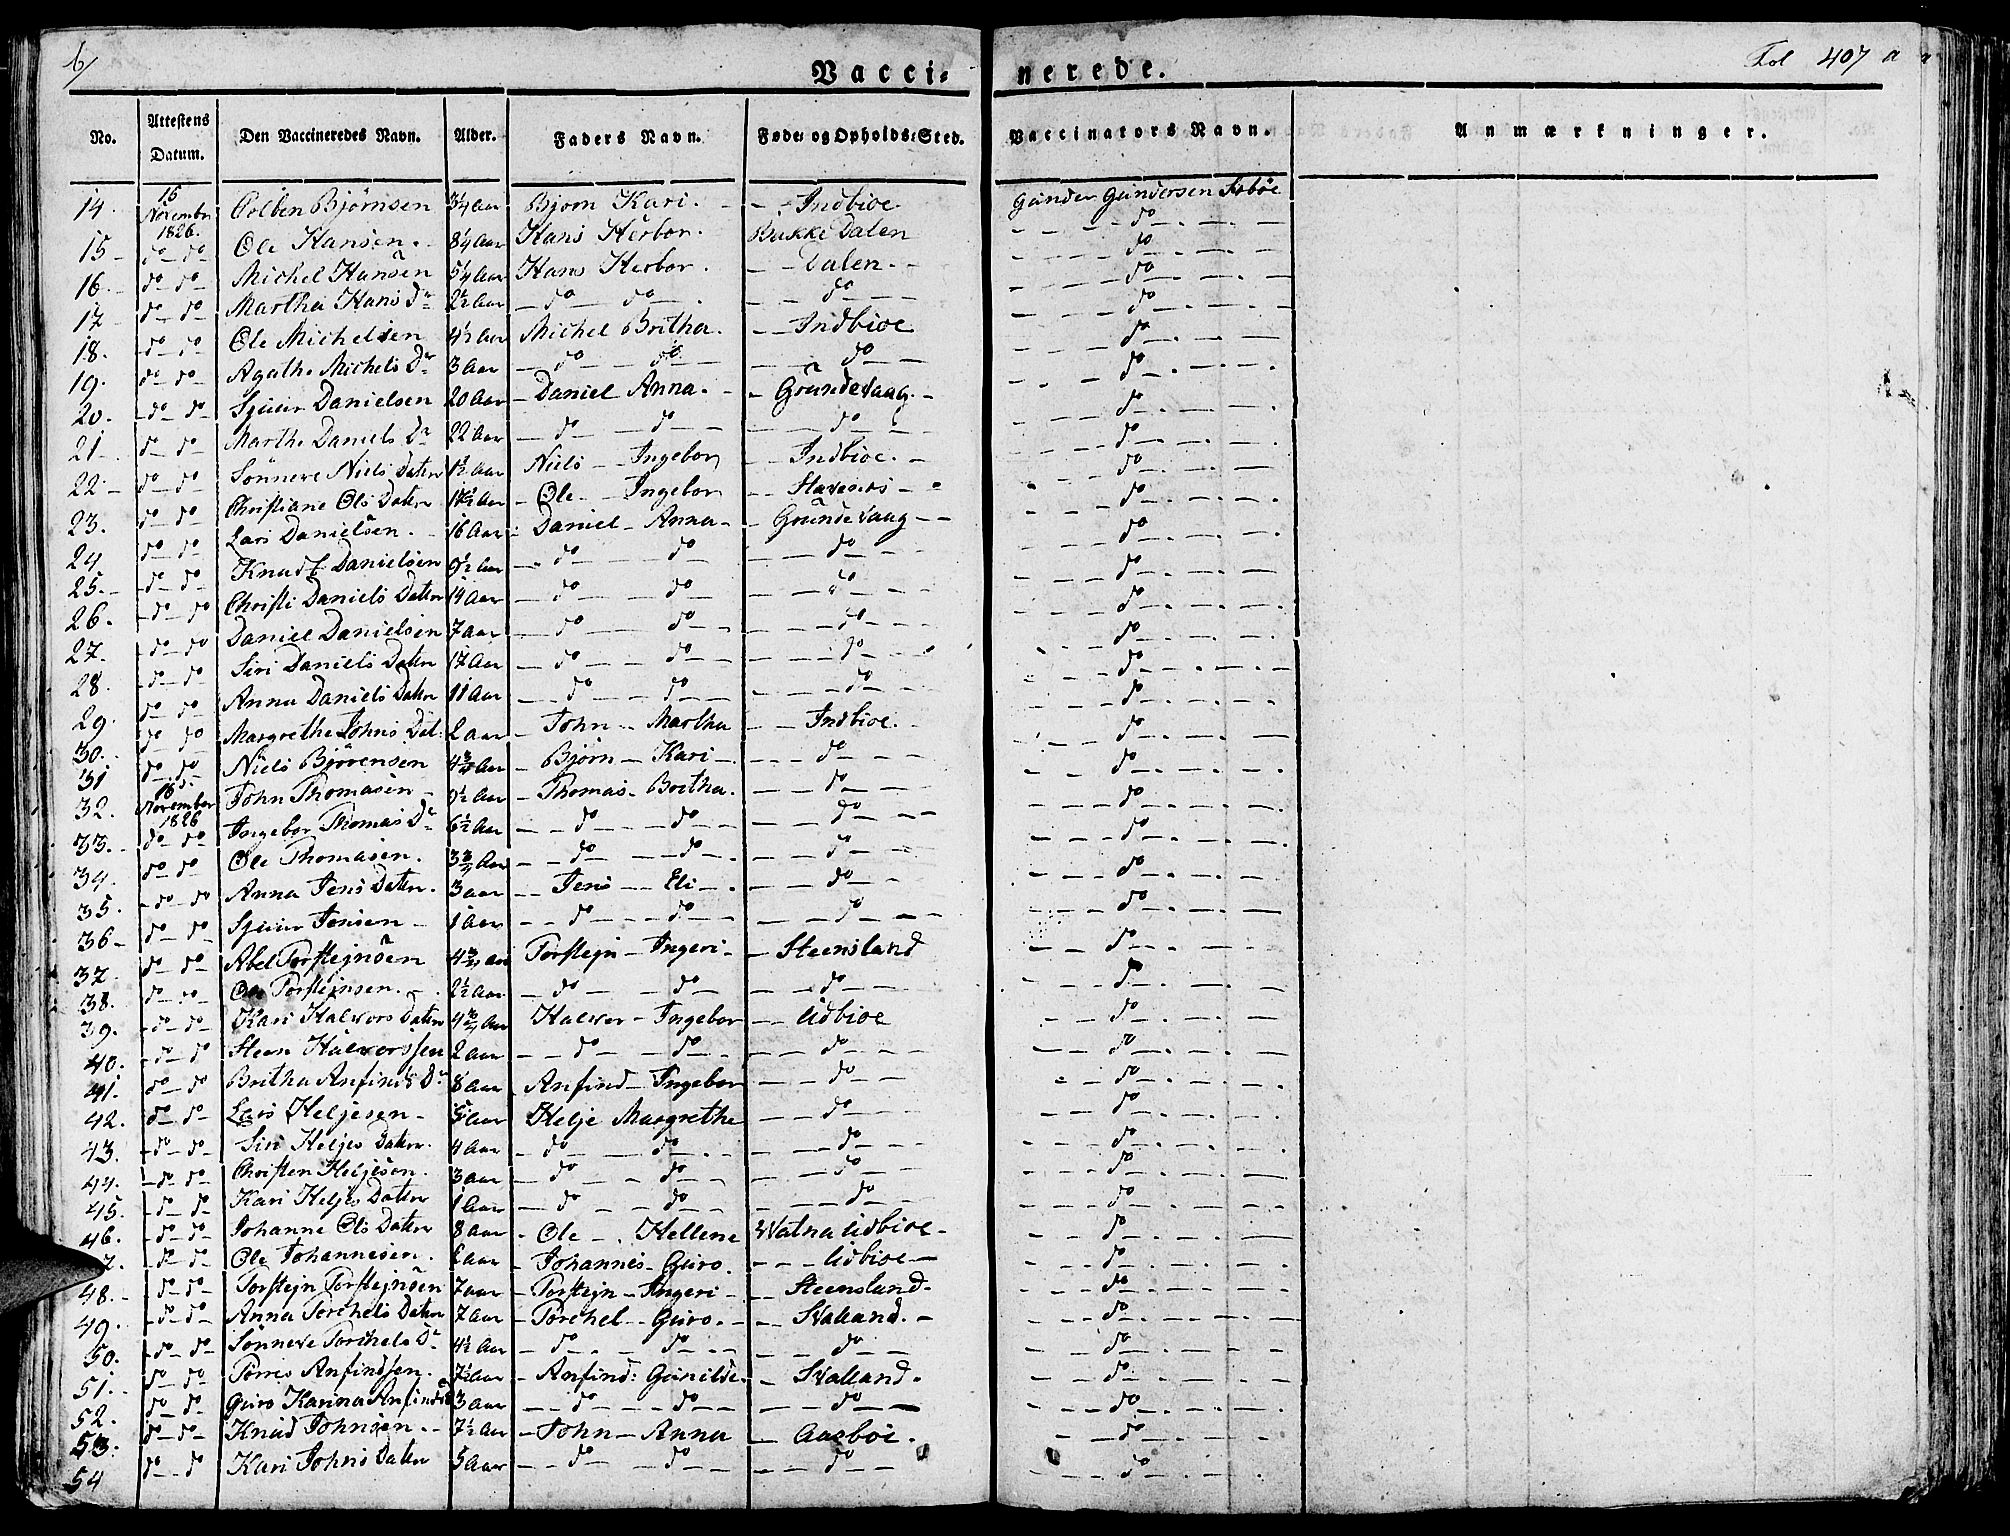 6/
Vacci- nerede.
Fol 407 a
No. Attestens Datum. Den Vaccineredes Navn. Alder. Faders Navn. Føde- og Opholds-Sted. Vaccinators Navn. Anmærkninger.
14. 15 November 1826. Colben Bjørnsen 3/4 Aar Bjørn Kari. Indbioe Gunder Gundersen
15 do do Ole Hansen. 8 1/4 Aar Hans Herbor. Bukke Dalen do
16. do do Michel Hansen 5 1/4 Aar Hans Herbor. Dalen. do
17 do do Martha Hans Dr 2 1/2 Aar do do do do
18. do do Ole Michelsen 4 1/2 Aar Michel Britha. Indbioe do
19. do do Agathe Michels Dr 3 Aar do do do do
20. do do Sjuur Danielsen 20 Aar Daniel Anna. Grundevaag. do
21 do do Marthe Daniels Dr 22 Aar do do do do
22 do do Sønneve Niels Datter 1 1/2 Aar Niels Ingebor Indbioe. do
23. do do Christiane Ols Datter Aar Ole Ingebor do
24 do do Lars Danielsen. 16 Aar Daniel Anna Grundevaag do
25. do do Knudt Danielsen 9 1/2 Aar do do do do
26. do do Christi Daniels Datter 14 Aar do do do do
27. do do Daniel Danielsen 7 aar do do do do
28. do do Siri Daniels Datter 17 Aar do do do do
29. do do Anna Daniels Datter 11 Aar do do do do
30. do do Margrethe Johns Dat: 2 aar John Martha Indbioe. do
31 do do Niels Bjørensen 4 3/4 Aar Bjørn Kari do do
32. 16 November 1826 John Thomasen 9 1/2 Aar Thomas Britha. do do
33. do do Ingebor Thomas Dr 6 1/2 Aar do do do do
34. do do Ole Thomasen. 3 3/4 Aar do do do do
35. do do Anna Jens Datter. 3 aar Jens Eli do do
36 do do Sjuur Jensen 1 Aar do do do do
37. do do Abel Torstejnsen 4 3/4 aar Torstejn Ingeri Steensland do
38. do do Ole Torstejnsen. 2 1/2 Aar do do do do
39. do do Kari Halvors Datter 4 3/4 Aar Halvor Ingebor Lidbioe do
40. do do Steen Halvorssen 2 Aar do do do do
41. do do Britha Anfinds Dr 8 aar Anfind Ingebor do do
42. do do Lars Heljesen 5 aar Helje Margrethe do do
43. do do Siri Heljes Datter. 4 Aar do do do do
44. do do Christen Heljesen. 3 aar do do do do
45. do do Kari Heljes Datter 1 Aar do do do do
46. do do Johanne Ols Datter 8 aar Ole Hellene Watna Lidbioe do
7. do do Ole Johannesen. 2 aar Johannes Guro. Lidbioe do
48. do do Torstejn Torstejnsen 7 aar Torstejn Ingeri Steensland. do
49. do do Anna Torchels Datter 7 aar Torchel Guro. Svalland. do
50. do do Sønneve Torchels Dr 4 1/2 Aar do do do do
51. do do Torris Anfindsen. 7 1/2 Aar Anfind: Gunilde. Svalland. do
52. do do Guro Karina Anfindsd 3 aar do do do do
53. do do Knud Johnsen. 7 1/2 Aar John Anna Aasbøe. do
54 do do Kari Johns Datter 5 Aar do do do do